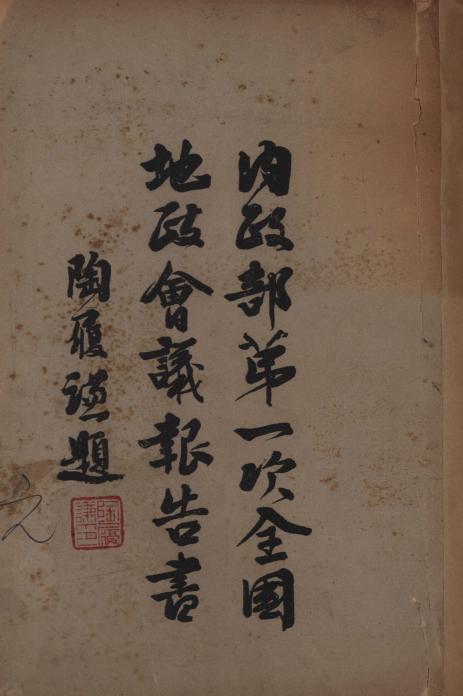 内政部第一次全國
地政會議報告書
陶履謙題
陶履謙印